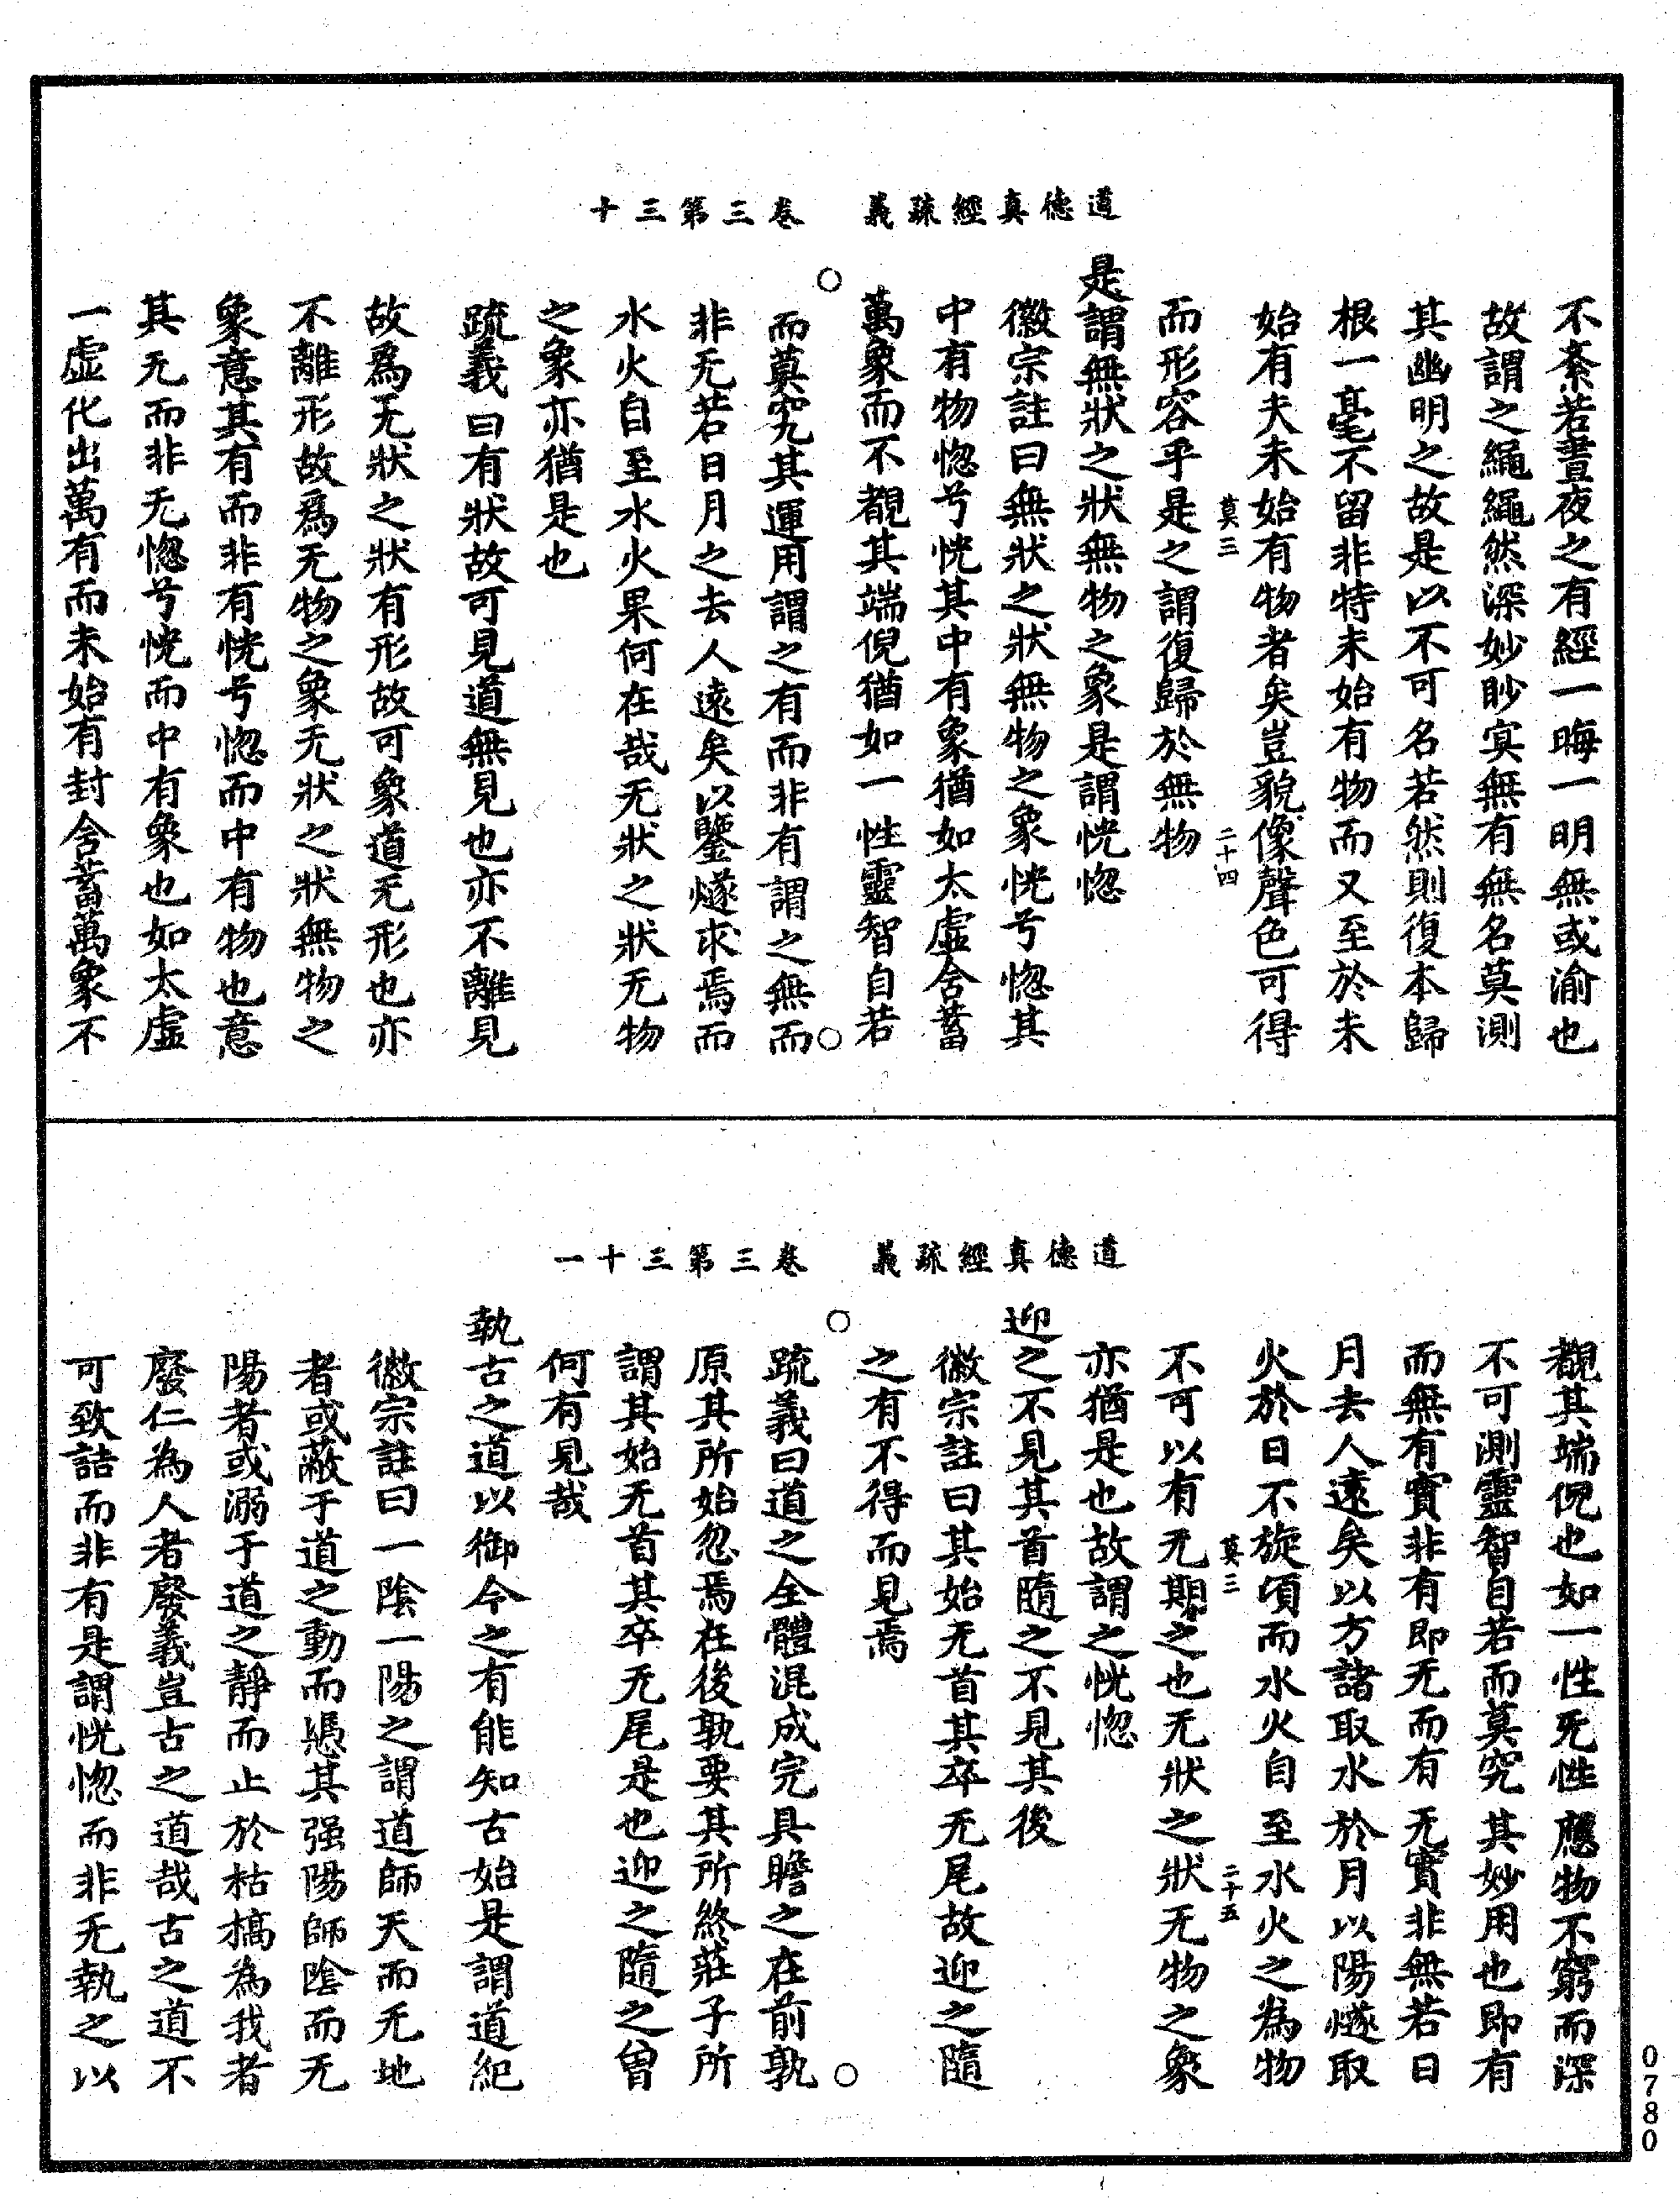 道德真經疏義　卷三第三十
不紊若晝夜之有經一晦一明無或渝也
故謂之繩繩然深妙眇冥無有無名莫測
其幽明之故是以不可名若然則復本歸
根一毫不留非特未始有物而又至於未
始有夫未始有物者矣豈貌像聲色可得
莫三　二十四
而形容乎是之謂復歸於無物
是謂無狀之狀無物之象是謂恍惚
徽宗註曰無狀之狀無物之象恍兮惚其
中有物惚兮恍其中有象猶如太虛含蓄
萬象而不覩其端倪猶如一性靈智自若
而莫究其運用謂之有而非有謂之無而
非无若日月之去人遠矣以鑒燧求焉而
水火自至水火果何在哉无狀之狀无物
之象亦猶是也
疏義曰有狀故可見道無見也亦不離見
故爲无狀之狀有形故可象道无形也亦
不離形故爲无物之象无狀之狀無物之
象意其有而非有恍兮惚而中有物也意
其无而非无惚兮恍而中有象也如太虛
一虛化出萬有而未始有封含蓄萬象不
道德真經疏義　卷三第三十一
覩其端倪也如一性无性應物不窮而深
不可測靈智自若而莫究其妙用也即有
而無有實非有即无而有无實非無若日
月去人遠矣以方諸取水於月以陽燧取
火於日不旋頃而水火自至水火之為物
莫三　二十五
不可以有无期之也无狀之狀无物之象
亦猶是也故謂之恍惚
迎之不見其首隨之不見其後
徽宗註曰其始无首其卒无尾故迎之隨
之有不得而見焉
疏義曰道之全體混成完具瞻之在前孰
原其所始忽焉在後孰要其所終莊子所
謂其始无首其卒无尾是也迎之隨之曾
何有見哉
執古之道以御今之有能知古始是謂道紀
徽宗註曰一陰一陽之謂道師天而无地
者或蔽于道之動而憑其强陽師陰而无
陽者或溺于道之靜而止於枯槁為我者
廢仁為人者廢義豈古之道哉古之道不
可致詰而非有是謂恍惚而非无執之以
0780